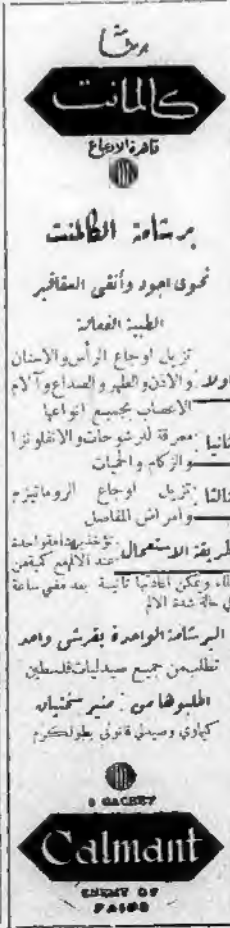 برشامة
كالمانت
قاهرة الاوجاع
برشامة الكالمنت
تحوى اجود وأنقى العقاقير
الطبية الفعالة
اولا : تزيل اوجاع الرأس والاسنان
والاذن والظهر والصداع وآلام
الاعصاب بجميع انواعها
ثانيا : معرقة للرشوحات والانفلونزا
والزكام والحميات
ثالثا : تزيل اوجاع الروماتيزم
وامراض المفاصل
طريقة الاستعمال : تؤخذ برشامة واحدة
عند الالم مع كمية من
الماء، ويمكن اعادتها ثانية بعد مضي ساعة
في حالة شدة الالم
البرشامة الواحدة بقرش واحد
تطلب من جميع صيدليات فلسطين
اطلبوها من : منير سختيان
كيماوي وصيدلي قانوني بطولكرم
CACHET
Calmant
ENEMY OF
PAINS